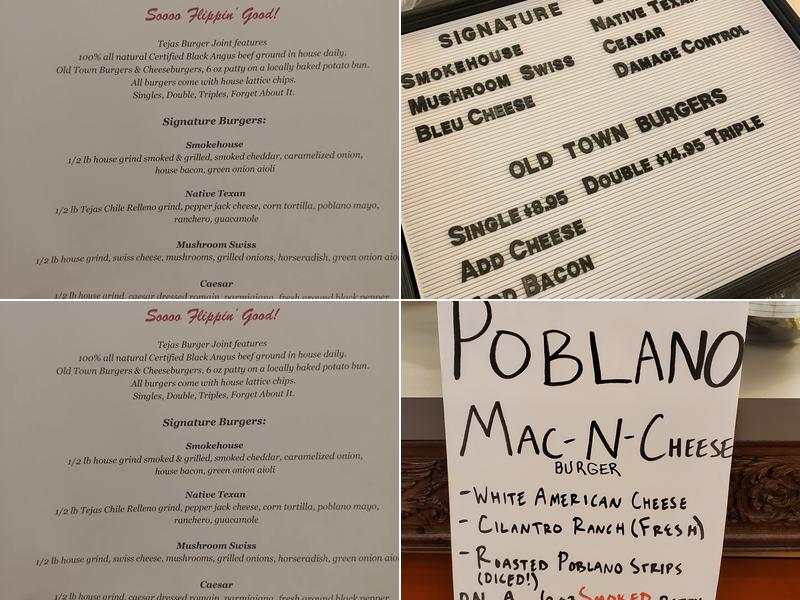 Soooo Flippin' Good!
Tejas Burger Joint features
100% all natural Certified Black Angus beef ground in house daily.
Old Town Burgers & Cheeseburgers, 6 oz patty on a locally baked potato bun.
All burgers come with house lattice chips.
Singles, Double, Triples, Forget About It.
Signature Burgers:
Smokehouse
1/2 lb house grind smoked & grilled, smoked cheddar, caramelized onion,
house bacon, green onion aioli
Native Texan
1/2 lb Tejas Chile Relleno grind, pepper jack cheese, corn tortilla, poblano mayo,
ranchero, guacamole
Mushroom Swiss
1/2 lb house grind, swiss cheese, mushrooms, grilled onions, horseradish, green onion aio
Caesar
1/2 lb house grind, caesar dressed romain, parmigiano, fresh ground black pepper
SIGNATURE
SMOKEHOUSE
MUSHROOM SWISS
BLEU CHEESE
NATIVE TEXAN
CEASAR
DAMAGE CONTROL
OLD TOWN BURGERS
SINGLE $8.95 DOUBLE $14.95 TRIPLE
ADD CHEESE
ADD BACON
Soooo Flippin' Good!
Tejas Burger Joint features
100% all natural Certified Black Angus beef ground in house daily.
Old Town Burgers & Cheeseburgers, 6 oz patty on a locally baked potato bun.
All burgers come with house lattice chips.
Singles, Double, Triples, Forget About It.
Signature Burgers:
Smokehouse
1/2 lb house grind smoked & grilled, smoked cheddar, caramelized onion,
house bacon, green onion aioli
Native Texan
1/2 lb Tejas Chile Relleno grind, pepper jack cheese, corn tortilla, poblano mayo,
ranchero, guacamole
Mushroom Swiss
1/2 lb house grind, swiss cheese, mushrooms, grilled onions, horseradish, green onion aio
Caesar
1/2 lb house grind, caesar dressed romain, parmigiano, fresh ground black pepper
POBLANO
MAC-N-CHEESE
BURGER
- WHITE AMERICAN CHEESE
- CILANTRO RANCH (FRESH)
- ROASTED POBLANO STRIPS
(DICED!)
ON A SMOKED